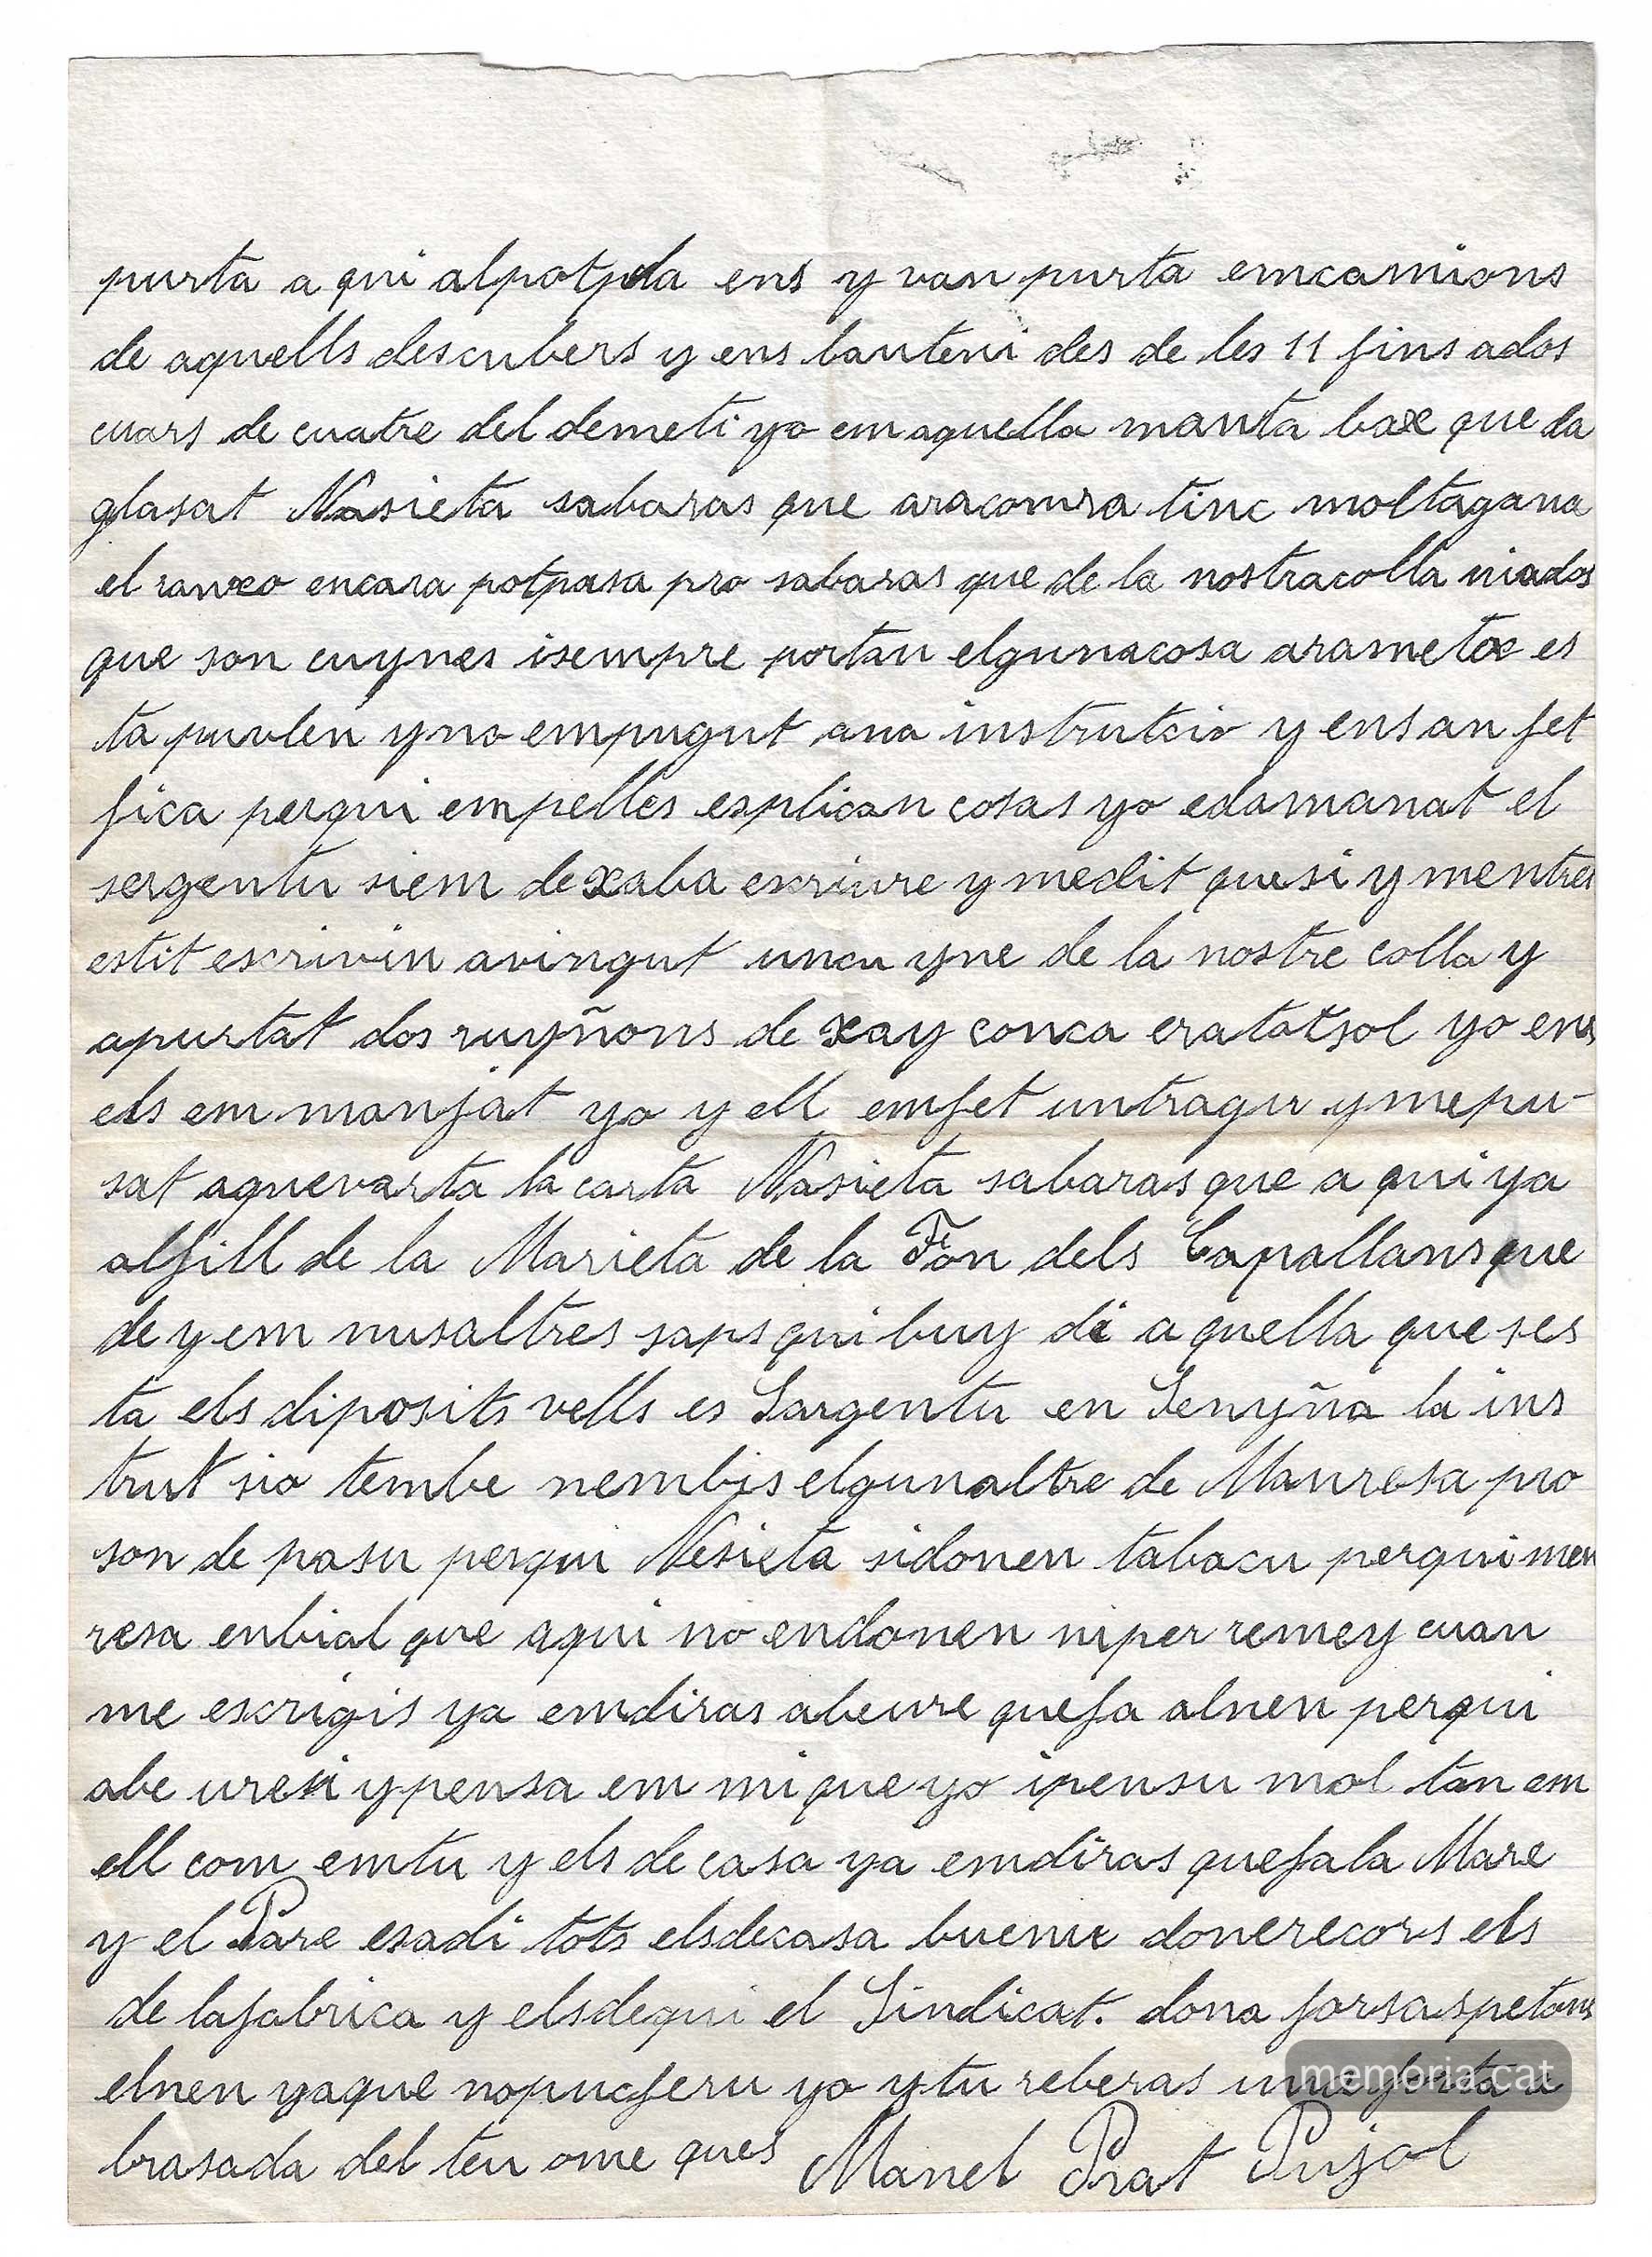 purta a qui alpotpda ens y van purta emcamions
de aquells descubers y ens bauteni des de les 11 fins ados
cuars de cuatre del demeti yo em aquella manta baxe que da
glasat Nasieta sabaras que aracomra tinc moltagana
el ranxo encara potpasa pro sabaras que de la nostracolla niados
que son cuynes isempre portan elgunacosa arametxe es
ta puvlen y no empugut ana instrutcio y ens an fet
fica perqui empelles esplican cosas yo edamanat el
sergentu siem dexaba escriure y medit quesi y mentres
estit escrivin avingut uncu yne de la nostre colla y
apurtat dos ruyñons de xay conca eratatsol yo ens
els em manjat yo y ell emfet untragu y mepu-
sat aquevarta la carta Nasieta sabaras que a qui ya
alfill de la Marieta de la Fon dels Capallans que
de y em nusaltres saps qui buy di a quella que ses
ta els diposits vells es Sargentu en Senyña la ins
trut sio tembe nembis elgunaltre de Manresa pro
son de pasu perqui Nesieta sidonen tabacu perqui men
resa enbial que aqui no endonen niper remey cuan
me escrigis ya emdiras abeure quefa alnen perqui
abe uresi ypensa em mi que yo ipensu mol tan em
ell com emtu y els de casa ya emdiras quefala Mare
y el Pare esadi tots elsdecasa buenu donerecors els
de lafabrica y elsdequi el Sindicat. dona forsaspetons
elnen yaque nopucferu yo y tu reberas una forta a
brasada del teu ome ques Manel Prat Pujol
memoria.cat